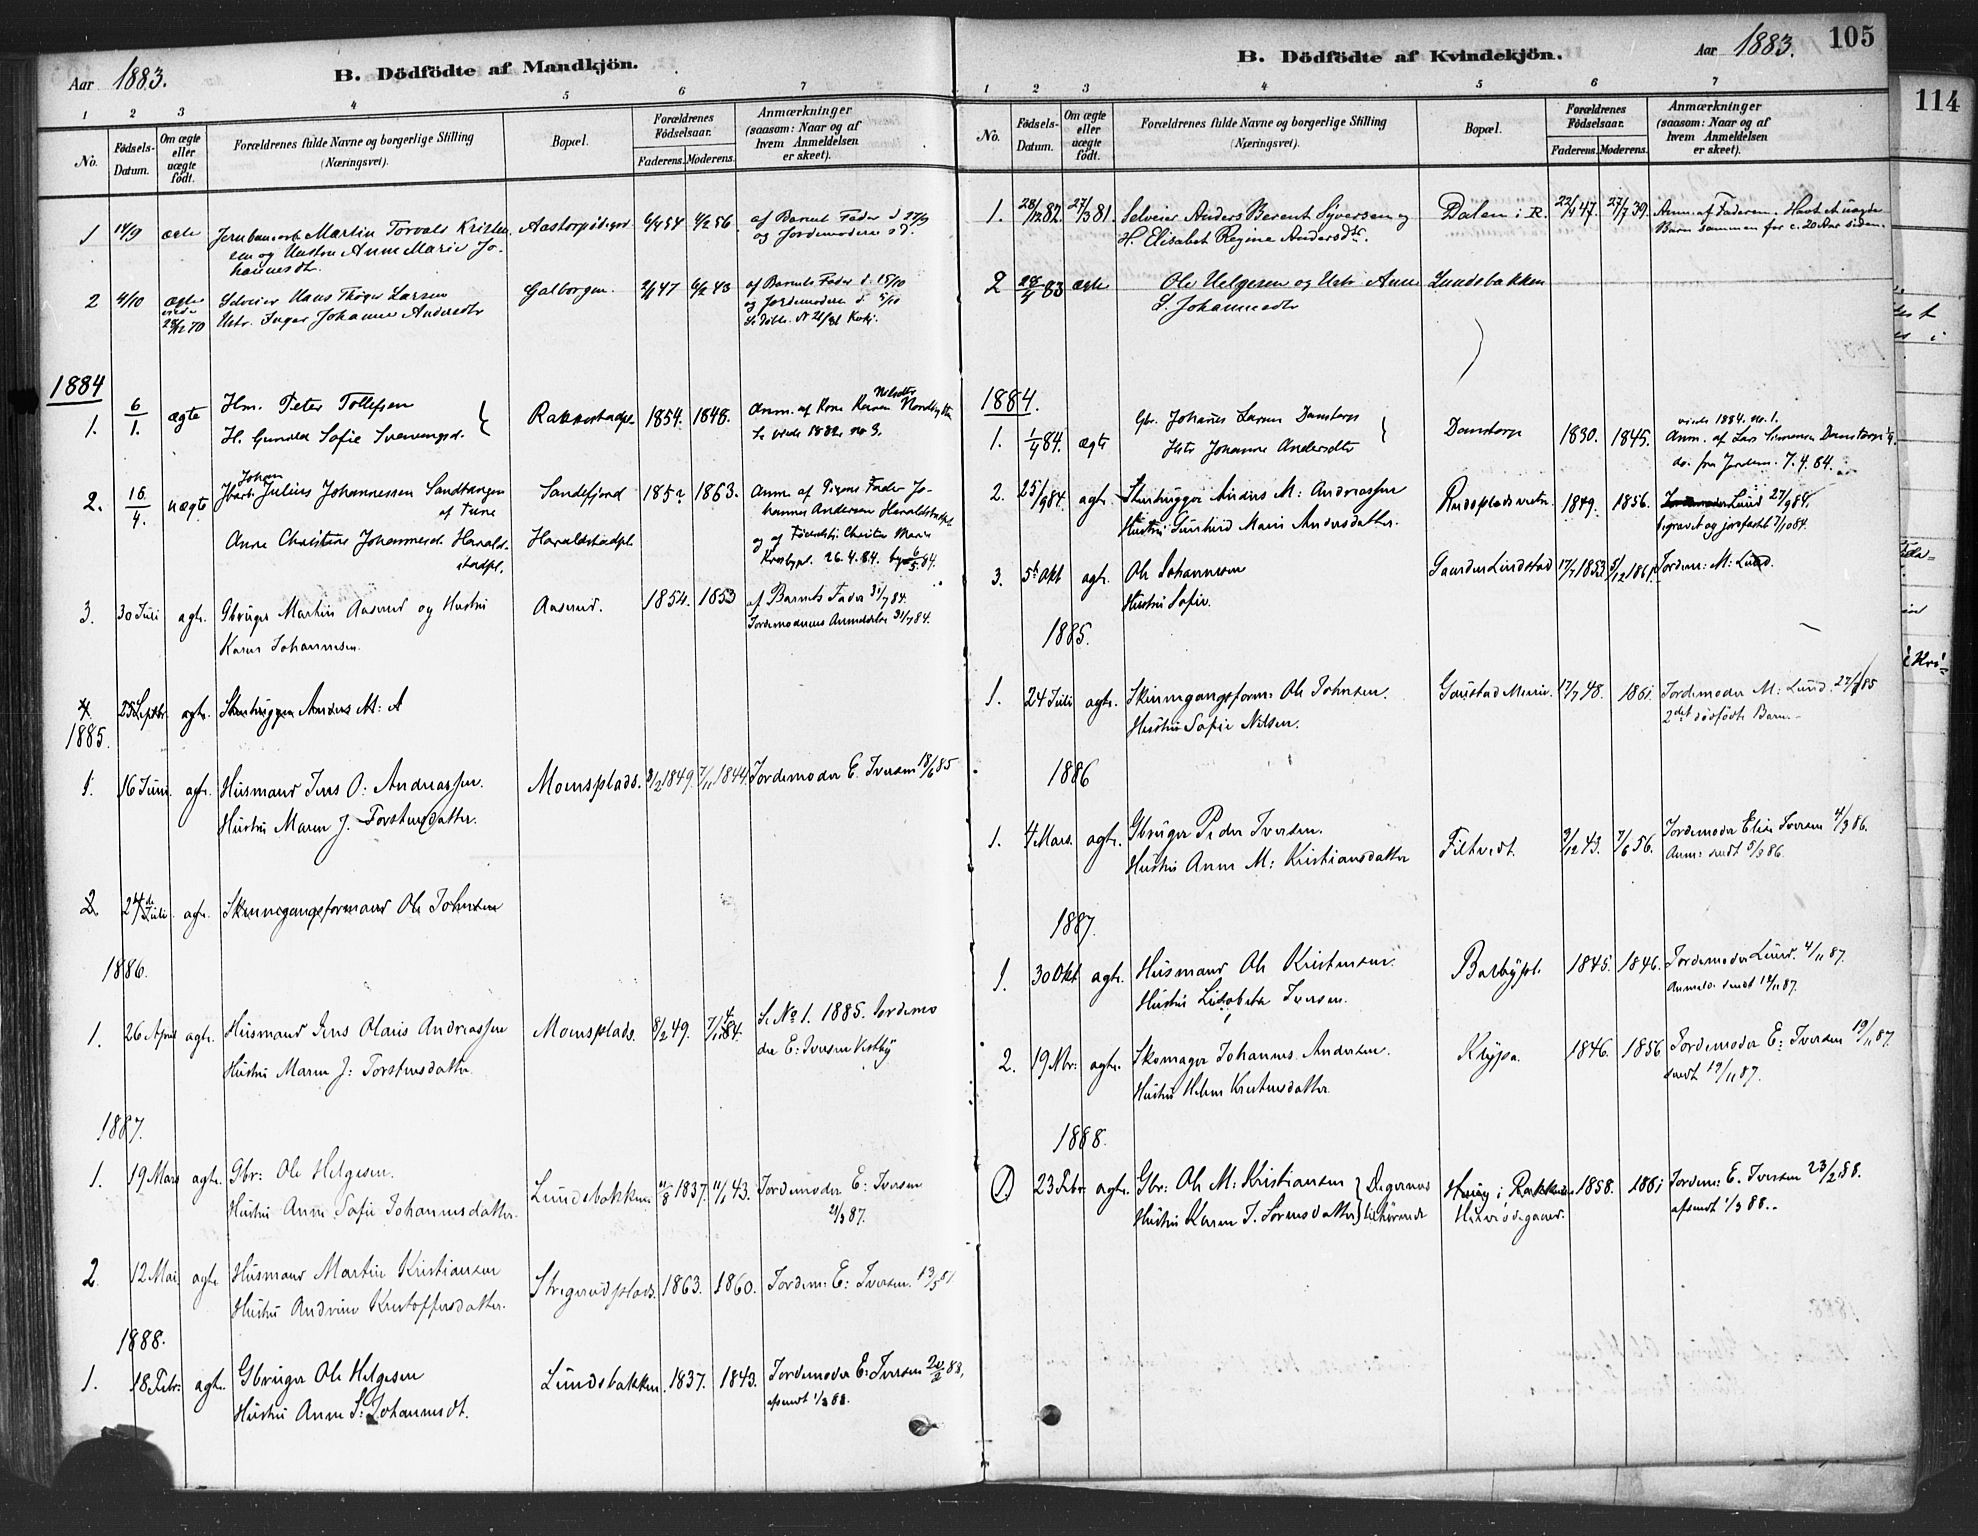 Aar 1883.
B. Dödfödte af Mandkjön.
1 2 3 4 5 6 7
No.
Födsels-
Datum.
Om ægte
eller
uægte
födt.
Forældrenes fulde Navne og borgerlige Stilling
(Næringsvei).
Bopæl.
Forældrenes
Födselsaar.
Faderens. Moderens.
Anmærkninger
(saasom: Naar og af
hvem Anmeldelsen
er skeet).
1 14/9 ægte Jernbanearb. Martin Torvald Kristen
sen og Hustru Anne Marie Jo-
hannesdtr.
6/4 54 4/2 56 af Barnets Fader d. 27/9
og Jordemoderen s. d.
2 4/10 ægte
Selveier Hans Thöger Larsen
Hstr. Inger Johanne Andersdtr
Galborgen 2/1 47 6/2 43
af Barnets Fader d. 15/10
og Jordemoderen d.
1884
1. 6/1. ægte Hm. Peter Tollefsen
H. Gunild Sofie Svenungsd.
Rakkestadpl. 1854. 1848.
Anm. af Kone Karen Nilsdtr
Se vied 1882 no 9.
2. 16/4. uægte
Johan
Julius Johannessen Sandtangen
af Tune
Sandefjord 1852 1863.
Anm. af Pigens Fader Jo-
hannes Andersen Haraldstadpl
Anne Christine Johannesd. Harald-
stadpl.
Haraldstadpl.
26.4.84.
3. 30 Juli agte. Gbruger Martin Aaserud og Hustru
Karen Johannesen.
Aaserud. 1854. 1853
af Barnets Fader 31/7 84.
Jordemoderens Anmeldelse 31/7 84.
4 25 Septbr. agte. Stenhugger Anders M: A
1885.
1. 16 Juni. agte. Husmand Jens O. Andreassen.
Hustru Maren J. Forstensdatter.
Moensplads. 8/2 1849. 7/11 1844. Jordemoder E. Iversen 18/6 85
2. 24de Juli. agte. Skinnegangsformand Ole Johnsen
1886.
1. 26 April agte. Husmand Jens Olaus Andreassen
Hustru Maren J: Torstensdatter.
Moensplads. 8/2 49. 7/11 44.
Se No 1. 1885. Jordemo
der E: Iversen Vestby
1887.
1. 19 Mars agte. Gbr: Ole Helgesen.
Hustru Anne Sofie Johannesdatter.
Lundebakken 1837. 11/1 43. Jordemoder E: Iversen
21/3 87.
2 12 Mai agte. Husmand Martin Kristiansen
Hustru Andrine Kristoffersdatter.
Stregerudplads. 1863. 1860. Jordem: E: Iversen. 13/5 87.
1888.
1. 18 Febr: agte. Gbruger Ole Helgesen
Hustru Anne S: Johannesdt.
Lundebakken. 1837. 1843. Jordemoder E: Iversen 20/2 88,
afsendt 1/3 88.
B. Dödfödte af Kvindekjön.
Aar 1883. 105
1 2 3 4 5 6 7
No.
Födsels-
Datum.
Om ægte
eller
uægte
födt.
Forældrenes fulde Navne og borgerlige Stilling
(Næringsvei).
Bopæl.
Forældrenes
Födselsaar.
Faderens. Moderens.
Anmærkninger
(saasom: Naar og af
hvem Anmeldelsen
er skeet).
1. 28/12 82. 27/3 81. Selveier Anders Berent Syversen og
H. Elisabet Regine Andersdtr.
Dalen i R. 22/4 47. 27/7 39. Anm. af Faderen. Havt et uægte
Barn sammen for c. 20 Aar siden.
2 83 ægte Ole Helgesen og Hstr. Anne
S. Johannesdtr
Lundebakken
1884.
1. 1/4 84. ægte
Gbr. Johannes Larsen Danstorp
Hstr. Johanne Andersdtr
Danstorp 1830. 1845.
viede 1884. no. 1.
Anm. af Lars Simensen Danstorp 1/4.
do. fra Jordem. 7.4.84.
2. 25/9 84. agte. Stenhugger Anders M: Andreassen
Hustru Gunhild Marie Andersdatter.
1849. 1856. Lund 27/9 84.
begravet og jordfæstet 7/10 84.
3. 5te Okt agte. Ole Johannesen
Hustru Sofie.
Gaarden Lindstad 17/7 1853 5/12 1861. Jordem: M: Lund.
1885.
1. 24 Juli agte. Skinnegangsform: Ole Johnsen.
Hustru Sofie Nilsen.
17/7 48. 1861. Jordemoder M: Lund. 27/7 85
2det dödfödte Barn.
1886
1. 4 Mars. agte. Gbruger Peder Iversen.
Hustru Anne M: Kristiansdatter
Filtvedt. 9/12 43. 7/6 56. Jordemoder Elise Iversen 4/3 86.
Anm: sendt 5/3 86.
1887.
1. 30 Okt agte. Husmand Ole Kristensen.
Hustru Lisabeta Iversen.
Barbypl. 1845. 1846. Jordemoder Lund. 4/11 87.
Anmeld. sendt 12/11 87.
2. 19 Nbr: agte. Skomager Johannes Andersen.
Hustru Helene Kristensdatter.
Krypa. 1846. 1856 Jordemoder E: Iversen 19/11 87.
sendt 19/11 87.
1888.
1. 23 Febr agte. Gbr: Ole M: Kristiansen } Degernes
Hustru Karen J. Sorensdatter } tilhørende
i Rakkestad 1858. 1861 Jordem: E. Iversen 23/2 88.
afsendt 1/3 88.
114